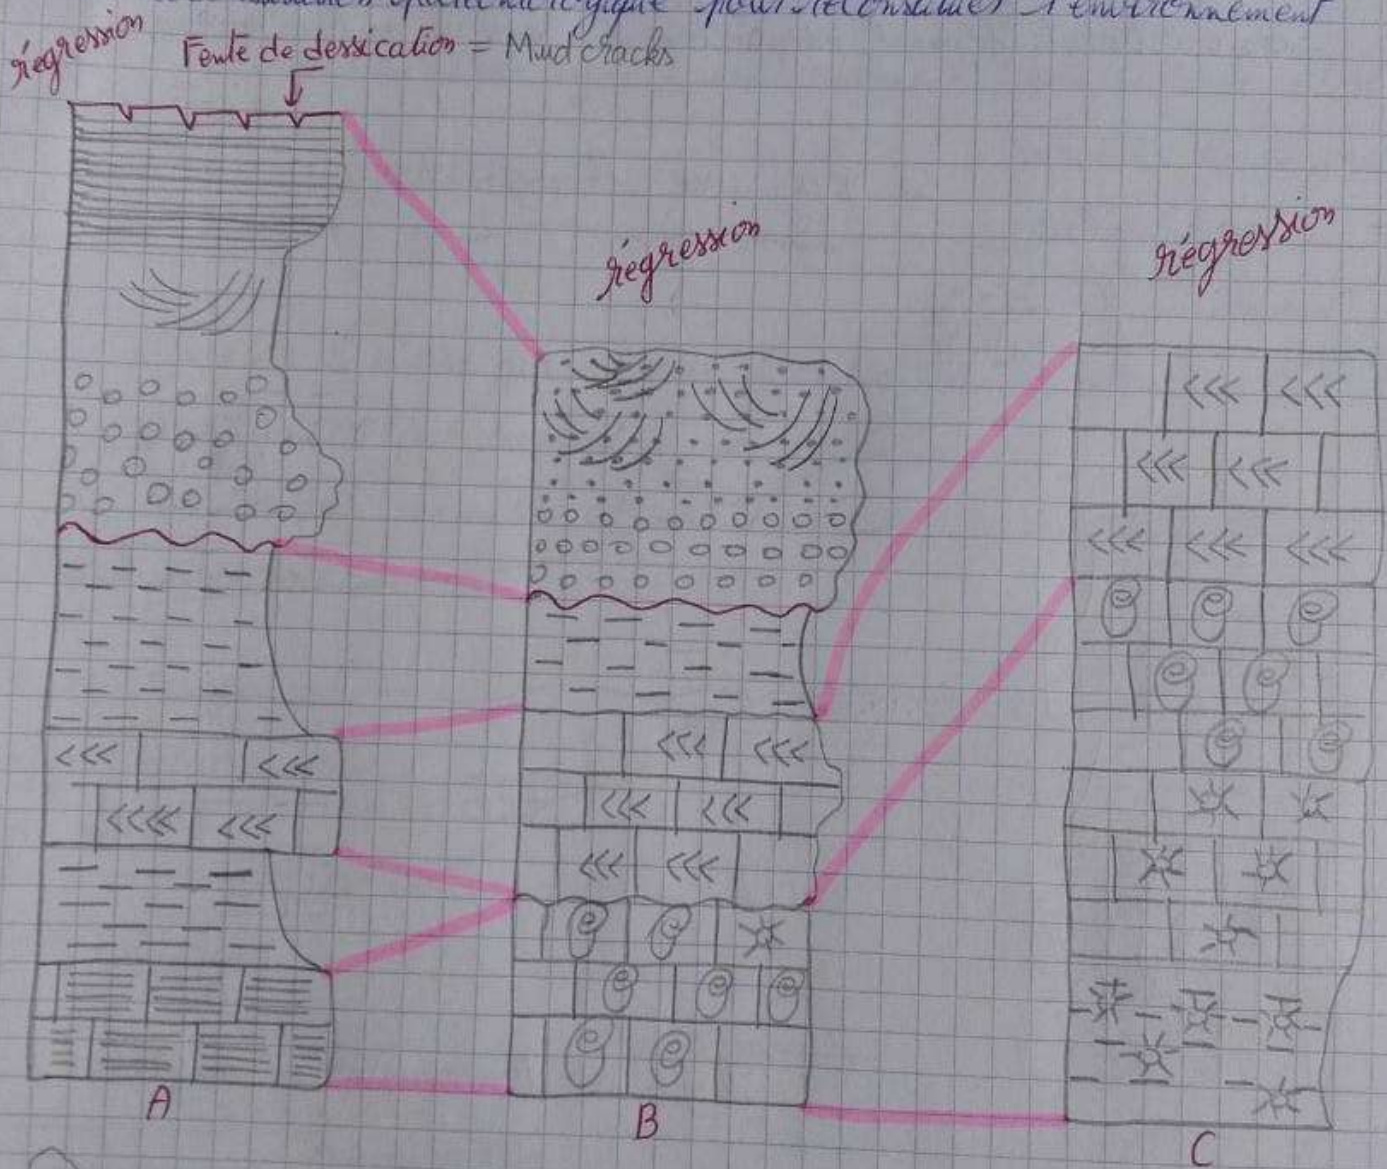 pour reconstituer l'environnement
régression
Fente de dessication = Mud cracks
régression
régression
A
B
C